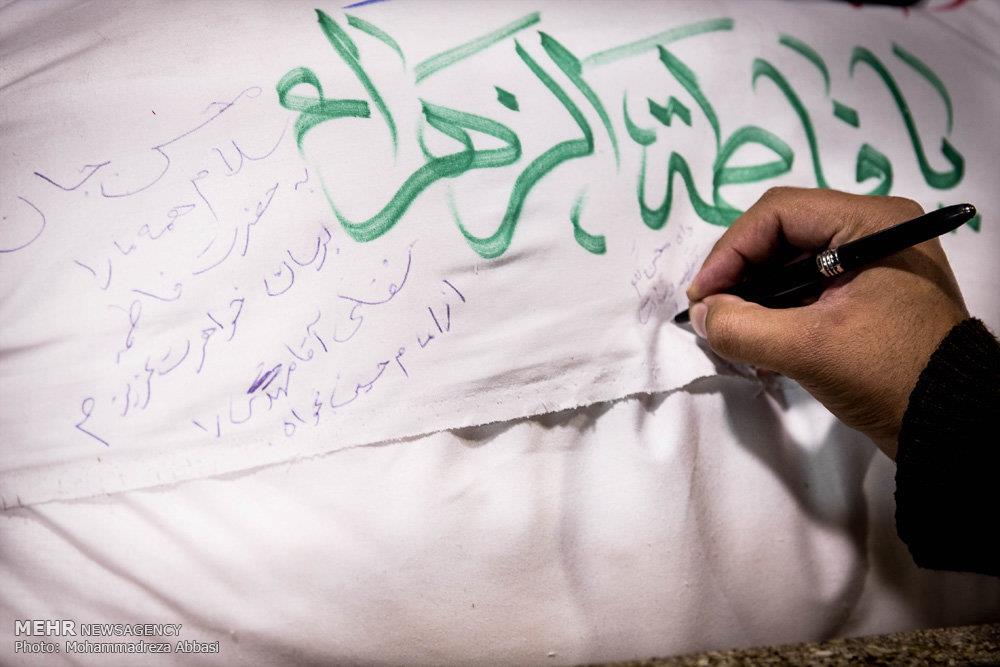 یا فاطمة الزهراء
محسن جان
سلام همه ما را
به حضرت فاطمه
برسان خواهرت عزیزم
شفای آقا مهدی را
از امام حسین بخواه
MEHR NEWSAGENCY
Photo: Mohammadreza Abbasi